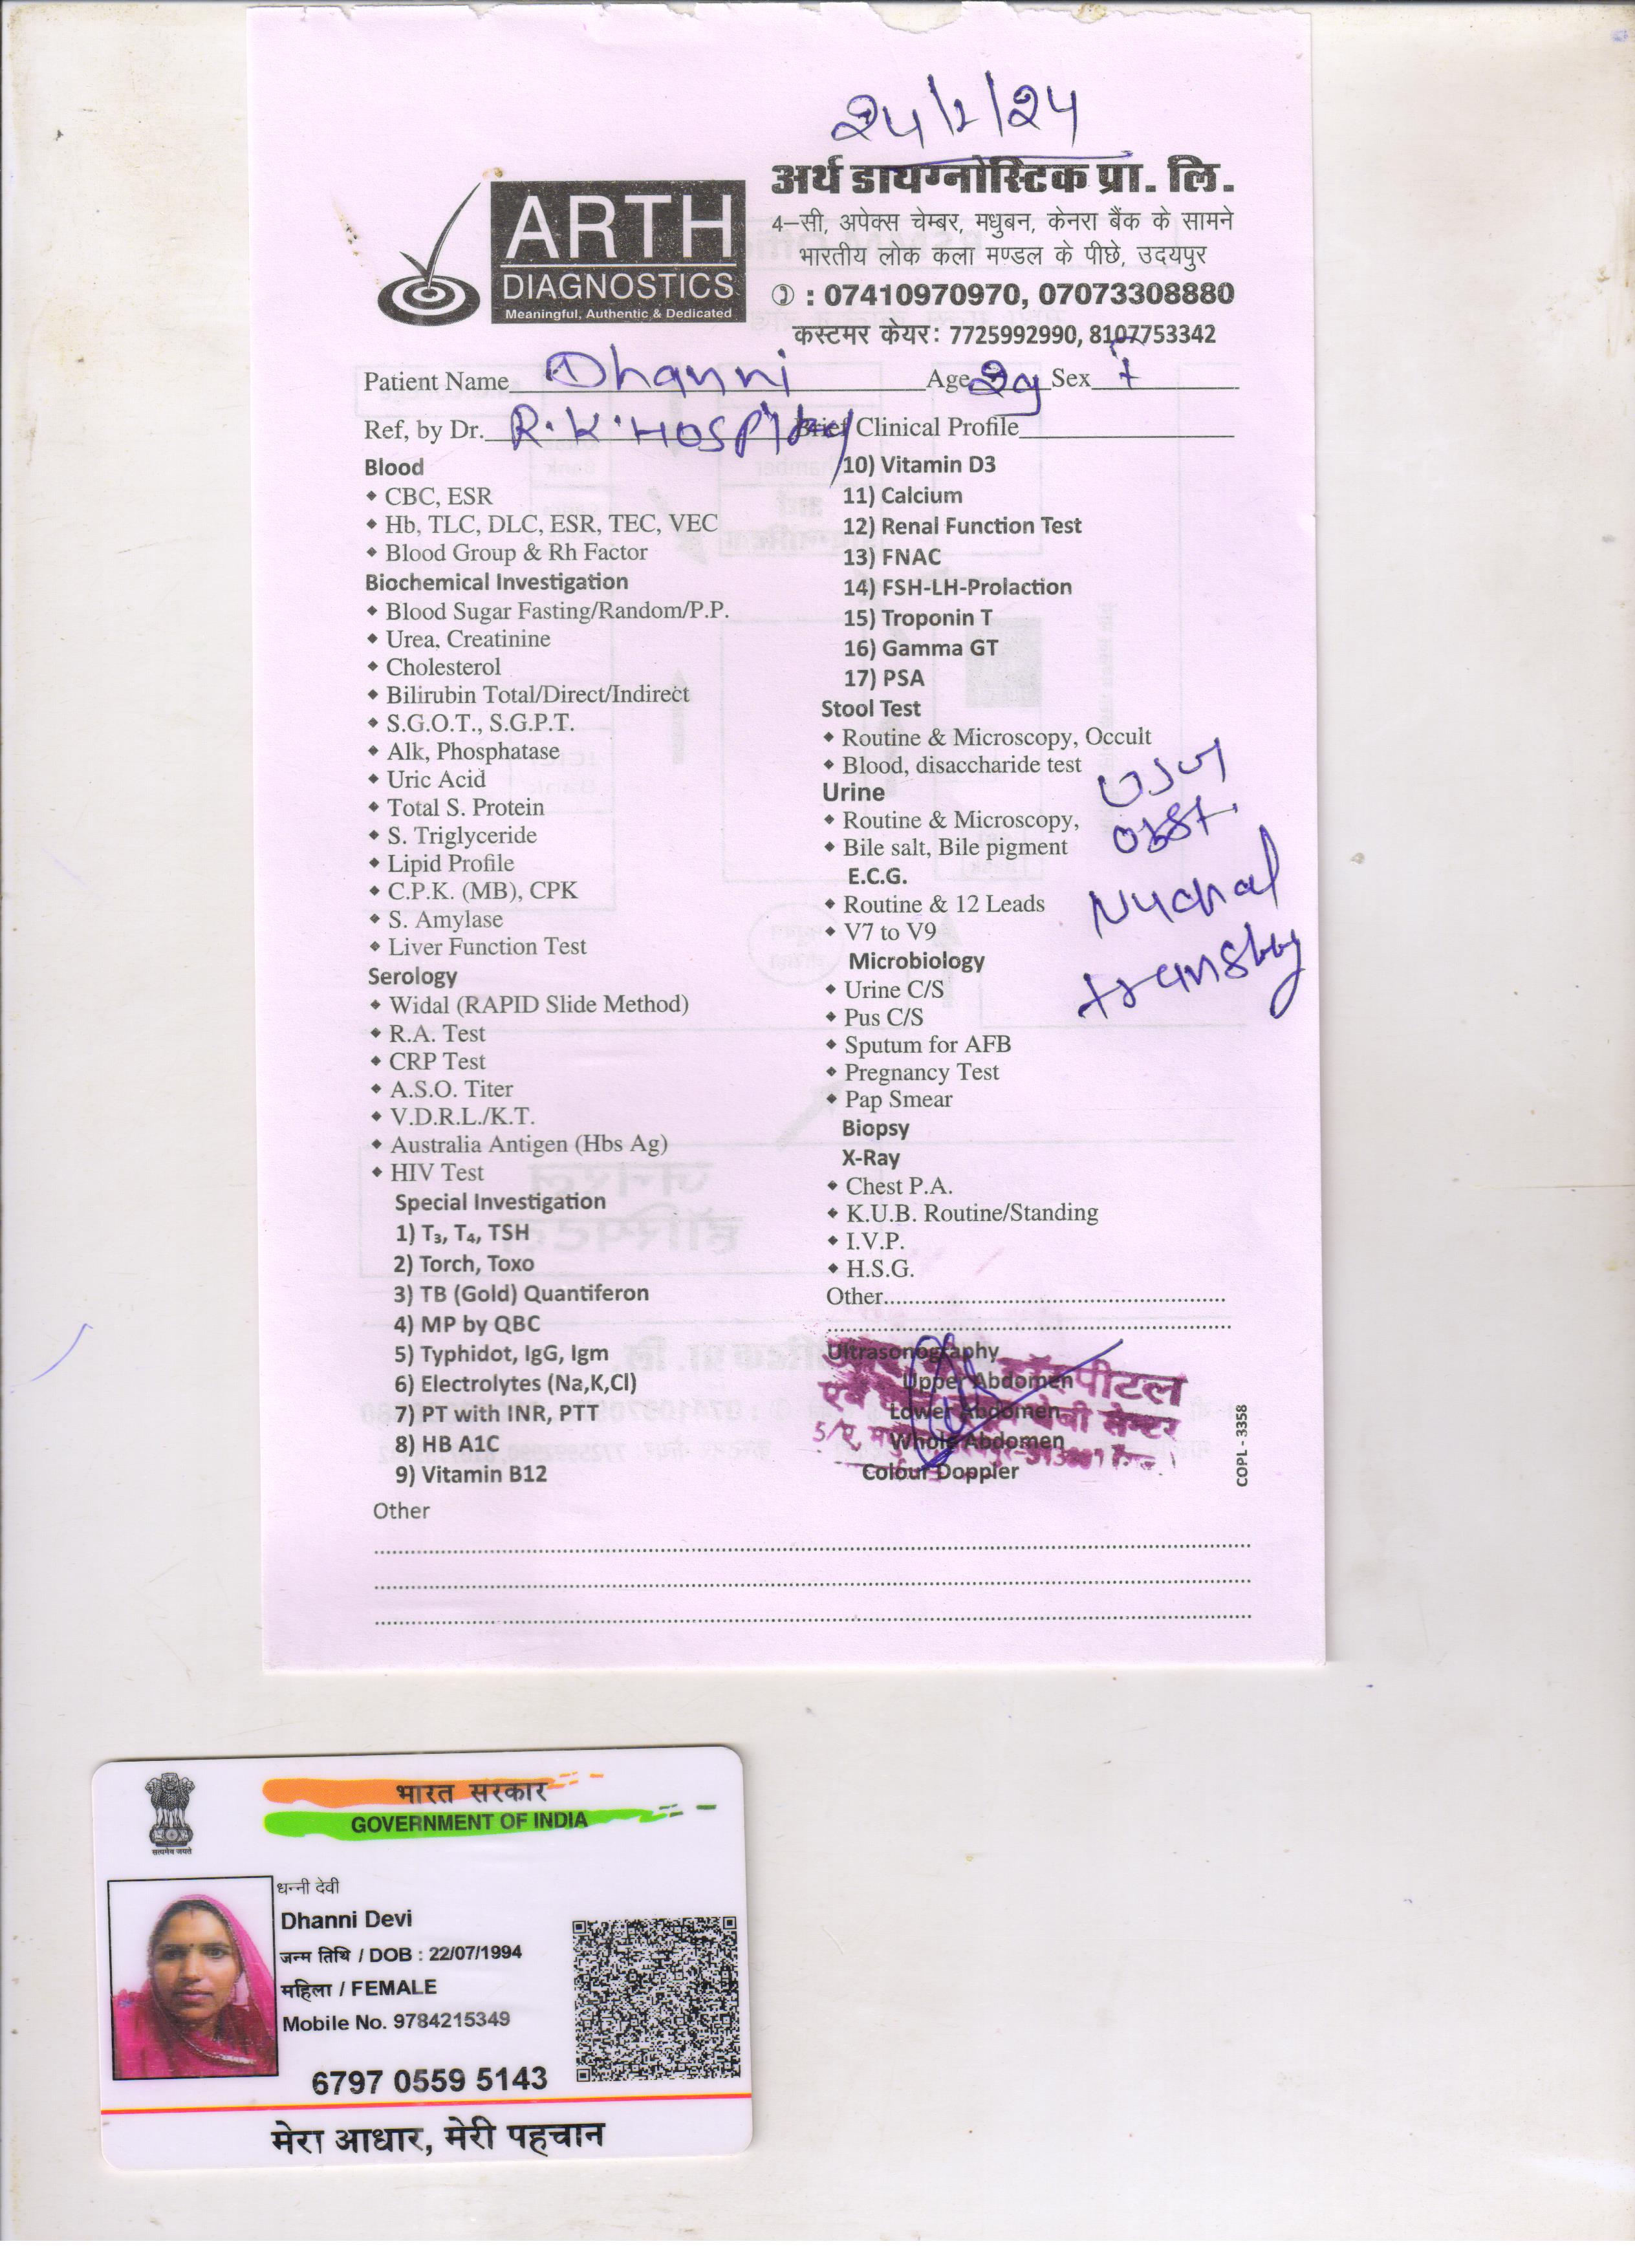 24/1/24
ARTH
DIAGNOSTICS
Meaningful, Authentic & Dedicated
अर्थ डायग्नोस्टिक प्रा. लि.
4–सी, अपेक्स चेम्बर, मधुबन, केनरा बैंक के सामने
भारतीय लोक कला मण्डल के पीछे, उदयपुर
: 07410970970, 07073308880
कस्टमर केयर: 7725992990, 8107753342
Patient Name Dhanni Age 29 Sex f
Ref, by Dr. R.K. Hospital Brief Clinical Profile
Blood
CBC, ESR
Hb, TLC, DLC, ESR, TEC, VEC
Blood Group & Rh Factor
Biochemical Investigation
Blood Sugar Fasting/Random/P.P.
Urea, Creatinine
Cholesterol
Bilirubin Total/Direct/Indirect
S.G.O.T., S.G.P.T.
Alk, Phosphatase
Uric Acid
Total S. Protein
S. Triglyceride
Lipid Profile
C.P.K. (MB), CPK
S. Amylase
Liver Function Test
Serology
Widal (RAPID Slide Method)
R.A. Test
CRP Test
A.S.O. Titer
V.D.R.L./K.T.
Australia Antigen (Hbs Ag)
HIV Test
Special Investigation
1) T₃, T₄, TSH
2) Torch, Toxo
3) TB (Gold) Quantiferon
4) MP by QBC
5) Typhidot, IgG, Igm
6) Electrolytes (Na,K,Cl)
7) PT with INR, PTT
8) HB A1C
9) Vitamin B12
10) Vitamin D3
11) Calcium
12) Renal Function Test
13) FNAC
14) FSH-LH-Prolaction
15) Troponin T
16) Gamma GT
17) PSA
Stool Test
Routine & Microscopy, Occult
Blood, disaccharide test
Urine
Routine & Microscopy,
Bile salt, Bile pigment
E.C.G.
Routine & 12 Leads
V7 to V9
Microbiology
Urine C/S
Pus C/S
Sputum for AFB
Pregnancy Test
Pap Smear
Biopsy
X-Ray
Chest P.A.
K.U.B. Routine/Standing
I.V.P.
H.S.G.
Other
USG
Obst.
Nuchal
Ultrasonography
Upper Abdomen
Lower Abdomen
Whole Abdomen
Colour Doppler
हॉस्पीटल
सेन्टर
COPL - 3358
Other
भारत सरकार
GOVERNMENT OF INDIA
सत्यमेव जयते
धन्नी देवी
Dhanni Devi
जन्म तिथि / DOB : 22/07/1994
महिला / FEMALE
Mobile No. 9784215349
6797 0559 5143
मेरा आधार, मेरी पहचान